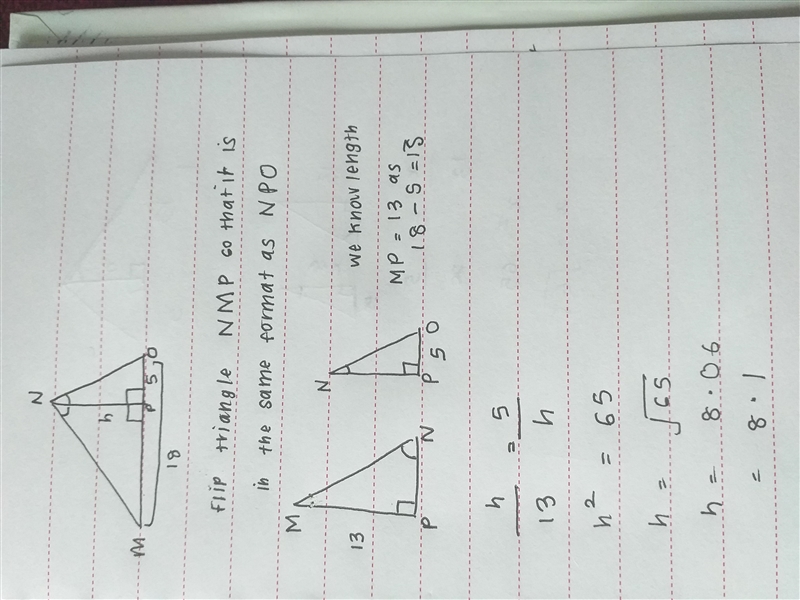 N
h
M P 5 O
18
flip triangle NMP so that it is
in the same format as NPO
M
13
P N
N
P 5 O
we know length
MP = 13 as
18 - 5 = 13
h/13 = 5/h
h² = 65
h = √65
h = 8.06
= 8.1